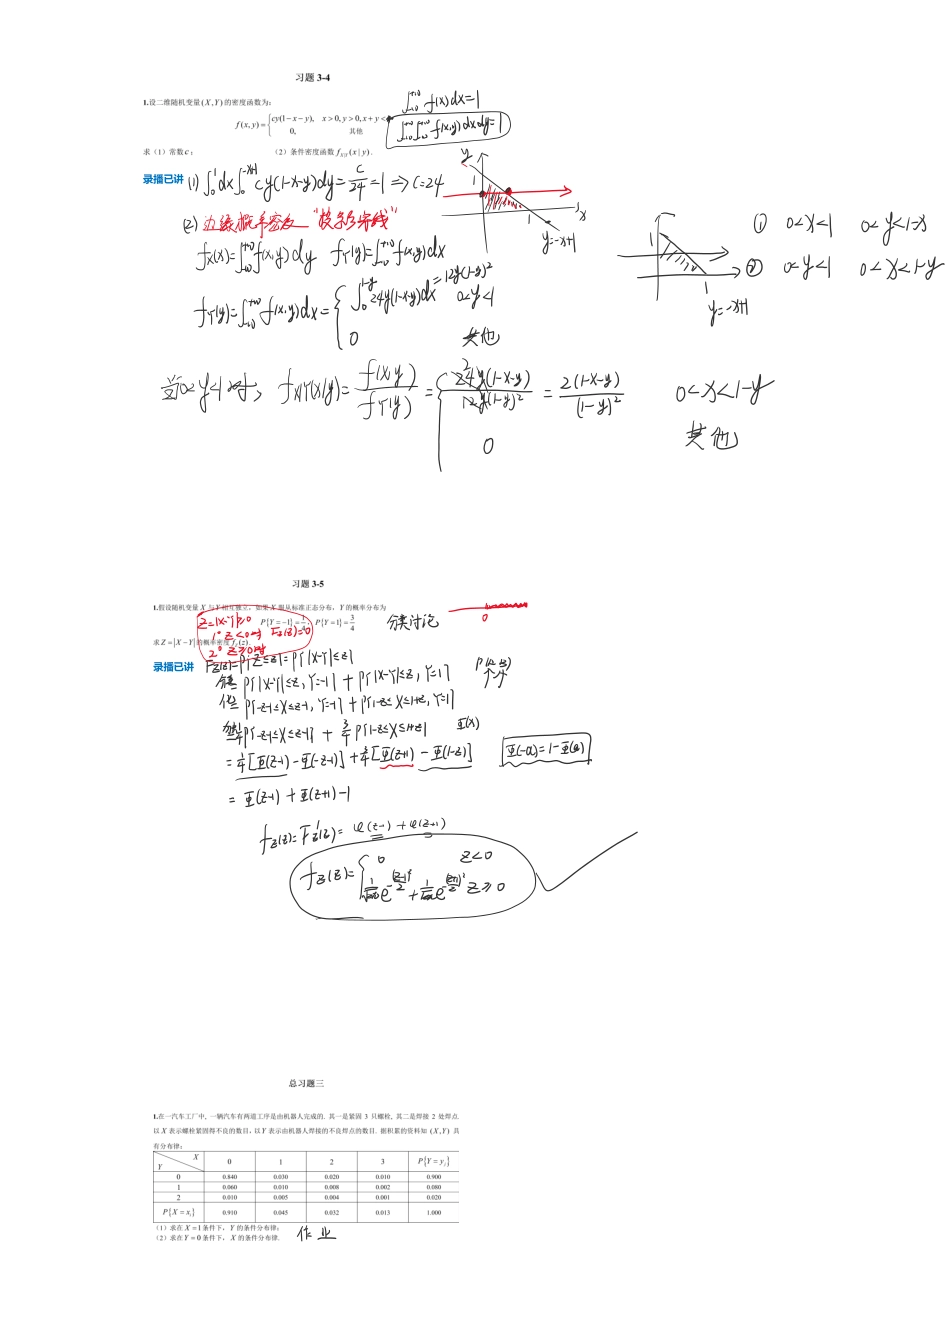 习题 3-4
1.设二维随机变量 (X,Y) 的密度函数为:
f(x,y)={cy(1−x−y), x>0,y>0,x+y<
0, 其他
∫_{-∞}^{+∞} f(x)dx=1
∫_{-∞}^{+∞}∫_{-∞}^{+∞} f(x,y)dxdy=1
求(1)常数c; (2)条件密度函数 f_{X|Y}(x|y).
录播已讲 (1) ∫_0^1 dx∫_0^{-x+1} cy(1-x-y)dy=c/24=1⇒C=24
y 1 1 x y=-x+1
(2) 边缘概率密度 "投影穿线"
f_X(x)=∫_{-∞}^{+∞} f(x,y)dy f_Y(y)=∫_{-∞}^{+∞} f(x,y)dx
1 1 y=-x+1
① 0<x<1 0<y<1-x
② 0<y<1 0<x<1-y
f_Y(y)=∫_{-∞}^{+∞} f(x,y)dx={∫_0^{1-y} 24y(1-x-y)dx=12y(1-y)² 0<y<1
0 其他
当0<y<1时, f_{X|Y}(x|y)=f(x,y)/f_Y(y)={24y(1-x-y)/12y(1-y)²=2(1-x-y)/(1-y)² 0<x<1-y
0 其他
习题 3-5
1.假设随机变量 X 与 Y 相互独立,如果 X 服从标准正态分布, Y 的概率分布为
P{Y=−1}=1/4, P{Y=1}=3/4
Z=|X-Y|≥0
1° Z<0时 F_Z(z)=0
2° Z≥0时
分类讨论
0
求 Z=|X−Y| 的概率密度 f_Z(z).
录播已讲 F_Z(z)=P{Z≤z}=P{|X-Y|≤z}
= P{|X-Y|≤z,Y=-1}+P{|X-Y|≤z,Y=1}
= P{-z-1≤X≤z-1,Y=-1}+P{1-z≤X≤1+z,Y=1}
= 1/4 P{-z-1≤X≤z-1}+3/4 P{1-z≤X≤1+z} Φ(x)
=1/4[Φ(z-1)-Φ(-z-1)]+3/4[Φ(z+1)-Φ(1-z)] Φ(-a)=1-Φ(a)
=Φ(z-1)+Φ(z+1)-1
f_Z(z)=F_Z'(z)=φ(z-1)+φ(z+1)
f_Z(z)={0 z<0
1/√2π e^{-(z-1)²/2}+1/√2π e^{-(z+1)²/2} z≥0
总习题三
1.在一汽车工厂中, 一辆汽车有两道工序是由机器人完成的. 其一是紧固 3 只螺栓, 其二是焊接 2 处焊点.
以 X 表示螺栓紧固得不良的数目,以 Y 表示由机器人焊接的不良焊点的数目. 据积累的资料知 (X,Y) 具
有分布律:
X Y 0 1 2 3 P{Y=y_j}
0 0.840 0.030 0.020 0.010 0.900
1 0.060 0.010 0.008 0.002 0.080
2 0.010 0.005 0.004 0.001 0.020
P{X=x_i} 0.910 0.045 0.032 0.013 1.000
(1)求在 X=1 条件下, Y 的条件分布律;
(2)求在 Y=0 条件下, X 的条件分布律. 作业